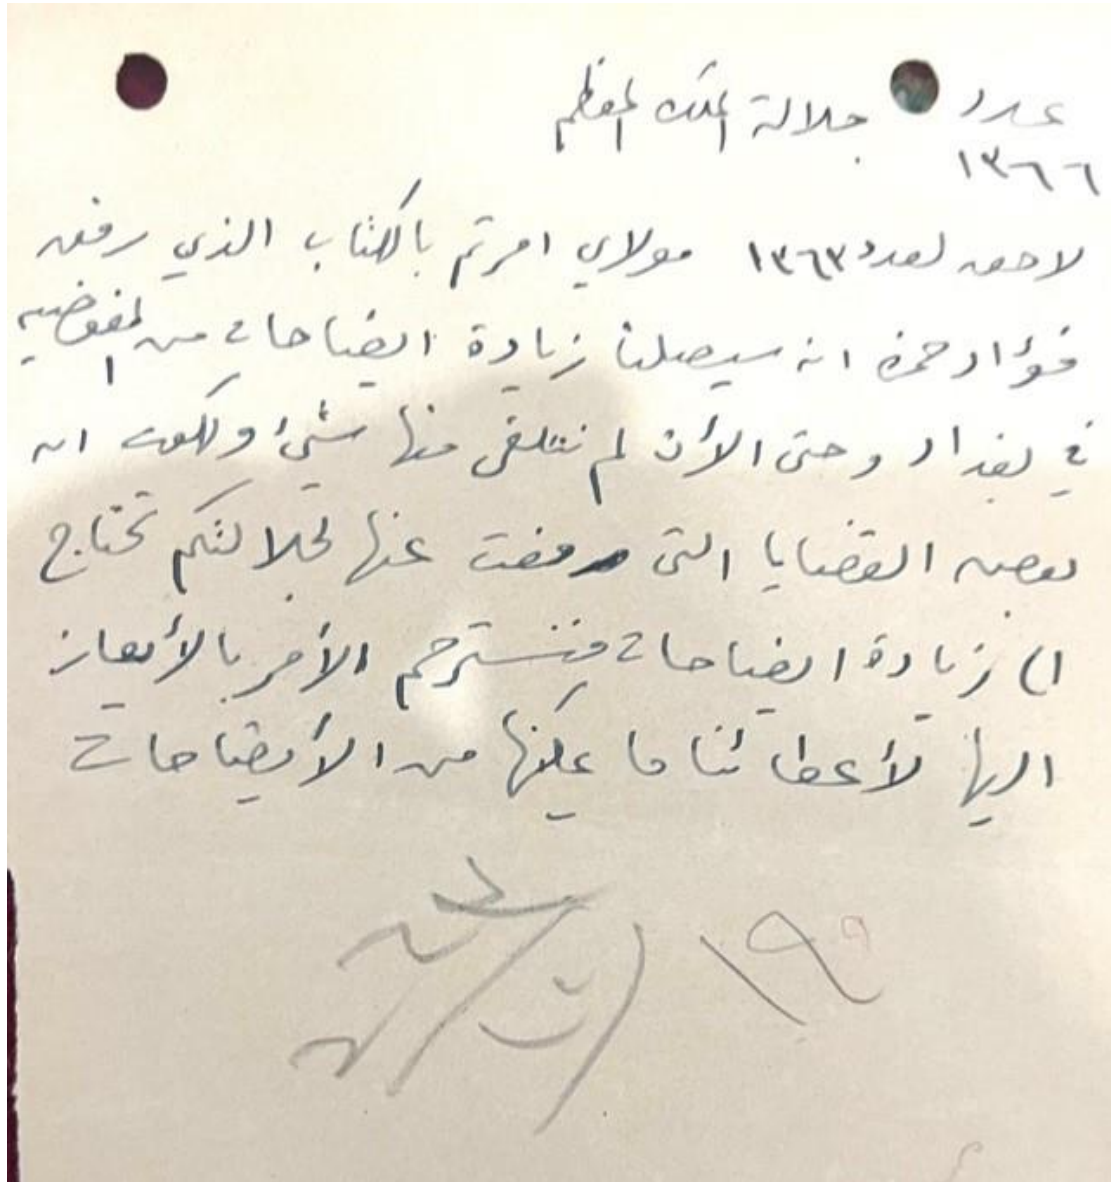 عدد جلالة الملك المعظم
١٣٦٦
لاحقه لعدد ١٣٦٣ مولاي امرتم بالكتاب الذي رفعه
فؤاد حمزه انه سيصلنا زيادة ايضاحات من المفوضيه
في بغداد وحتى الأن لم نتلقى منها شيئ ولكون ان
بعض القضايا التي رفعت عنها لجلالتكم تحتاج
الى زيادة ايضاحات فنسترحم الأمر بالأيعاز
اليها لأعطائنا ما يمكنها من الأيضاحات
١٩